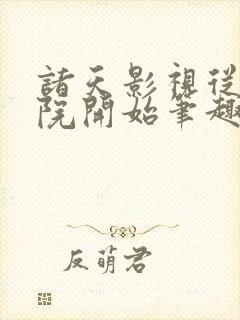 諸天影視從
院開始筆趣
反萌君